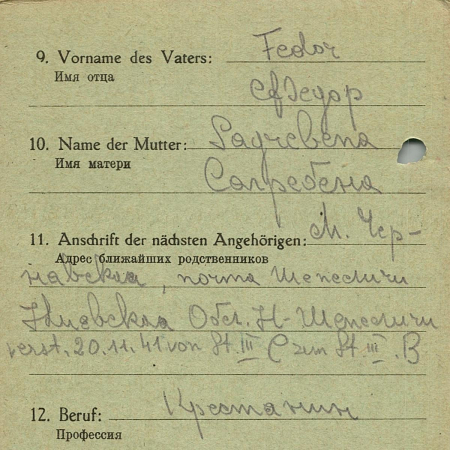 9. Vorname des Vaters: Fedor
Имя отца
Федор
10. Name der Mutter:
Имя матери
11. Anschrift der nächsten Angehörigen: М. Чер-
Адрес ближайших родственников
навская, почта Шепеличи
Киевская Обл. Н-Шепеличи
verst. 20.11.41 von St. III C zum St III. B
12. Beruf: Крестьянин
Профессия